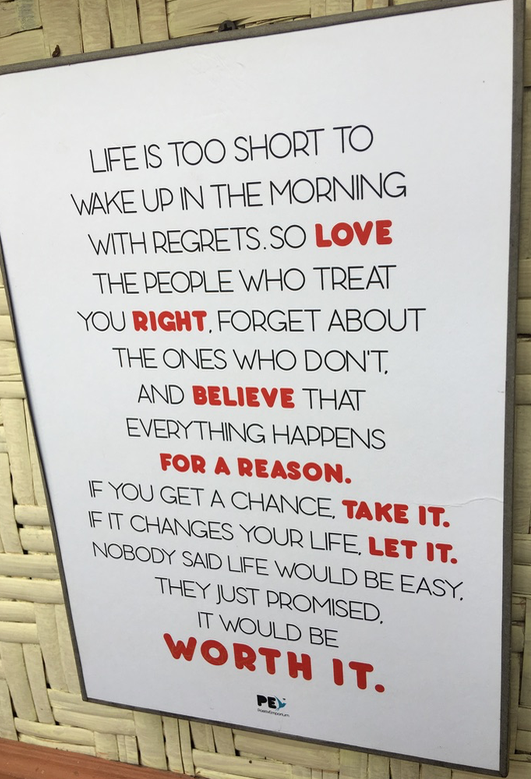 LIFE IS TOO SHORT TO
WAKE UP IN THE MORNING
WITH REGRETS. SO LOVE
THE PEOPLE WHO TREAT
YOU RIGHT, FORGET ABOUT
THE ONES WHO DON'T,
AND BELIEVE THAT
EVERYTHING HAPPENS
FOR A REASON.
IF YOU GET A CHANCE, TAKE IT.
IF IT CHANGES YOUR LIFE, LET IT.
NOBODY SAID LIFE WOULD BE EASY,
THEY JUST PROMISED,
IT WOULD BE
WORTH IT.
PEY